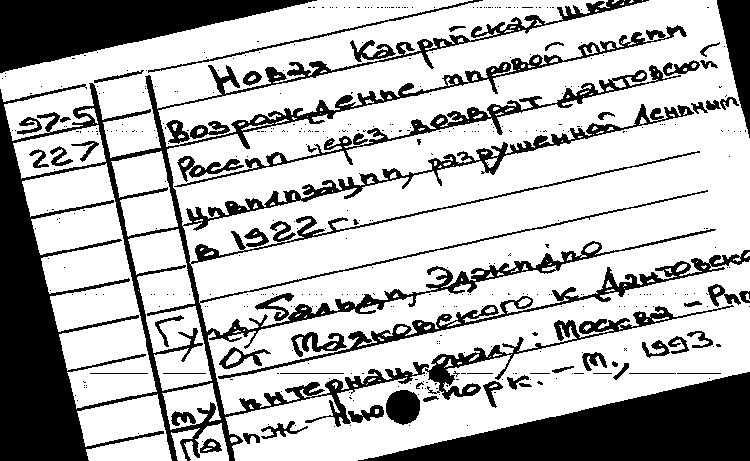 Новая Каприйская шко
97-5 Возрождение мировой миссии
227 России через возврат дантовской
цивилизации, разрушенной Лениным
в 1922 г.
Гундубальди, Эджидио
От Маяковского к Дантовско
му интернационалу: Москва - Ри
Париж - Нью-Йорк. - М., 1993.